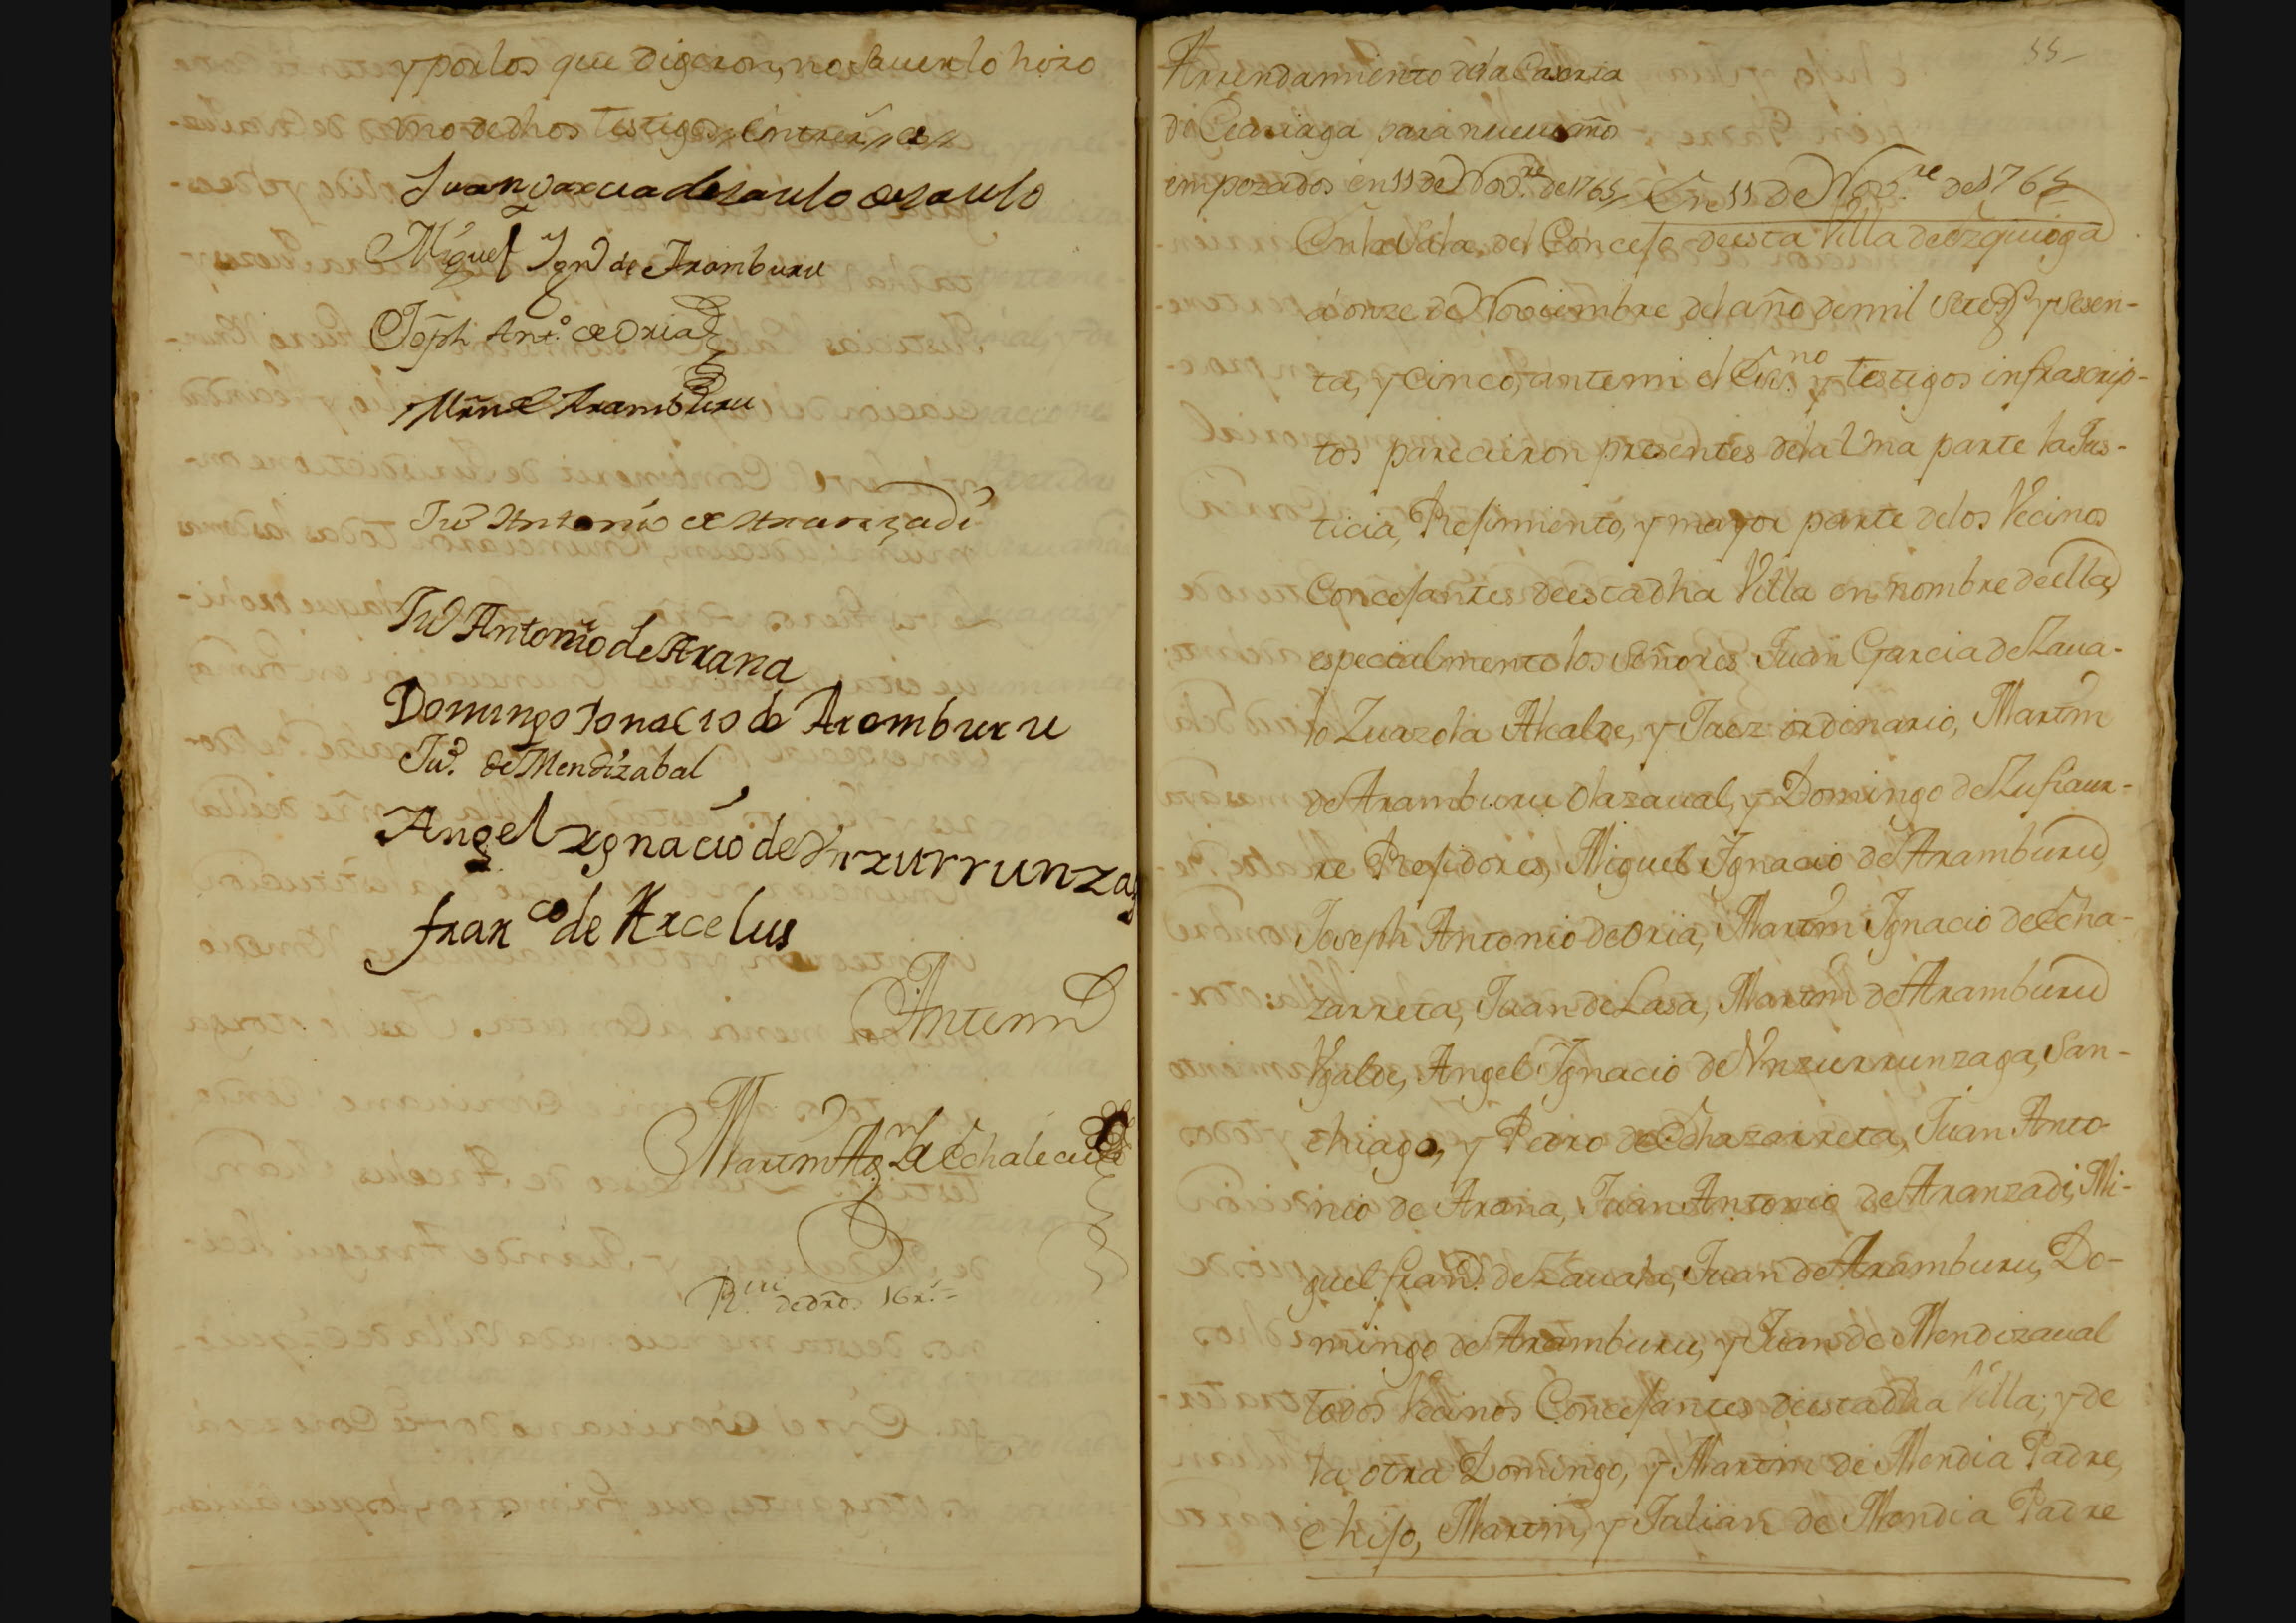 y por los que digeron, no sauer lo hizo
uno de dhos testigos, entrerr.s
Juan Garcia de
Miguel Ign.o de Aramburu
Joseph Ant.o de Oria
Mrñ de Aramburu
Ju.o Antonio de Aranzadi
Ju.o Antonio de Arana
Domingo Ignacio de Aramburu
Ju.o de Mendizabal
Angel Ygnacio de Vnzurrunzag
fran.co de Arcelus
Antemi
Martin Ag.n de Echalecu
R.vi de dros. 16 r.s
55
Arrendamiento dela Caseria
de para nueue años
empezados en 11 de Nov.re de 1765, En 11 de Nov.re de 1765
En la Sala del Concejo de esta Villa de Ezquioga
á onze de Noviembre del año de mil setez.s y sesen-
ta, y cinco, antemi el Esc.no y testigos infrascrip-
tos parecieron presentes dela Una parte la Jus-
ticia, Rejimiento, y mayor parte delos Vecinos
Concejantes de esta dha Villa en nombre de ella,
especialmente los Señores Juan Garcia de Zaua-
lo Zuazola Alcalde, y Juez ordinario, Martin
de Aramburu Olazaual, y Domingo de Zufiaur-
re Rejidores, Miguel Ignacio de Aramburu,
Joseph Antonio de Oria, Martin Ignacio de Echa-
zarreta, Juan de Lasa, Martin de Aramburu
Vgalde, Angel Ignacio de Vnzurrunzaga, San-
thiago, y Pedro de Echazarreta, Juan Anto-
nio de Arana, Juan Antonio de Aranzadi, Mi-
guel fran.co de Zauala, Juan de Aramburu, Do-
mingo de Aramburu, y Juan de Mendizaual
todos Vecinos Concejantes de esta dha Villa; y de
la otra Domingo, y Martin de Mendia Padre,
e hijo, Martin, y Julian de Mendia Padre